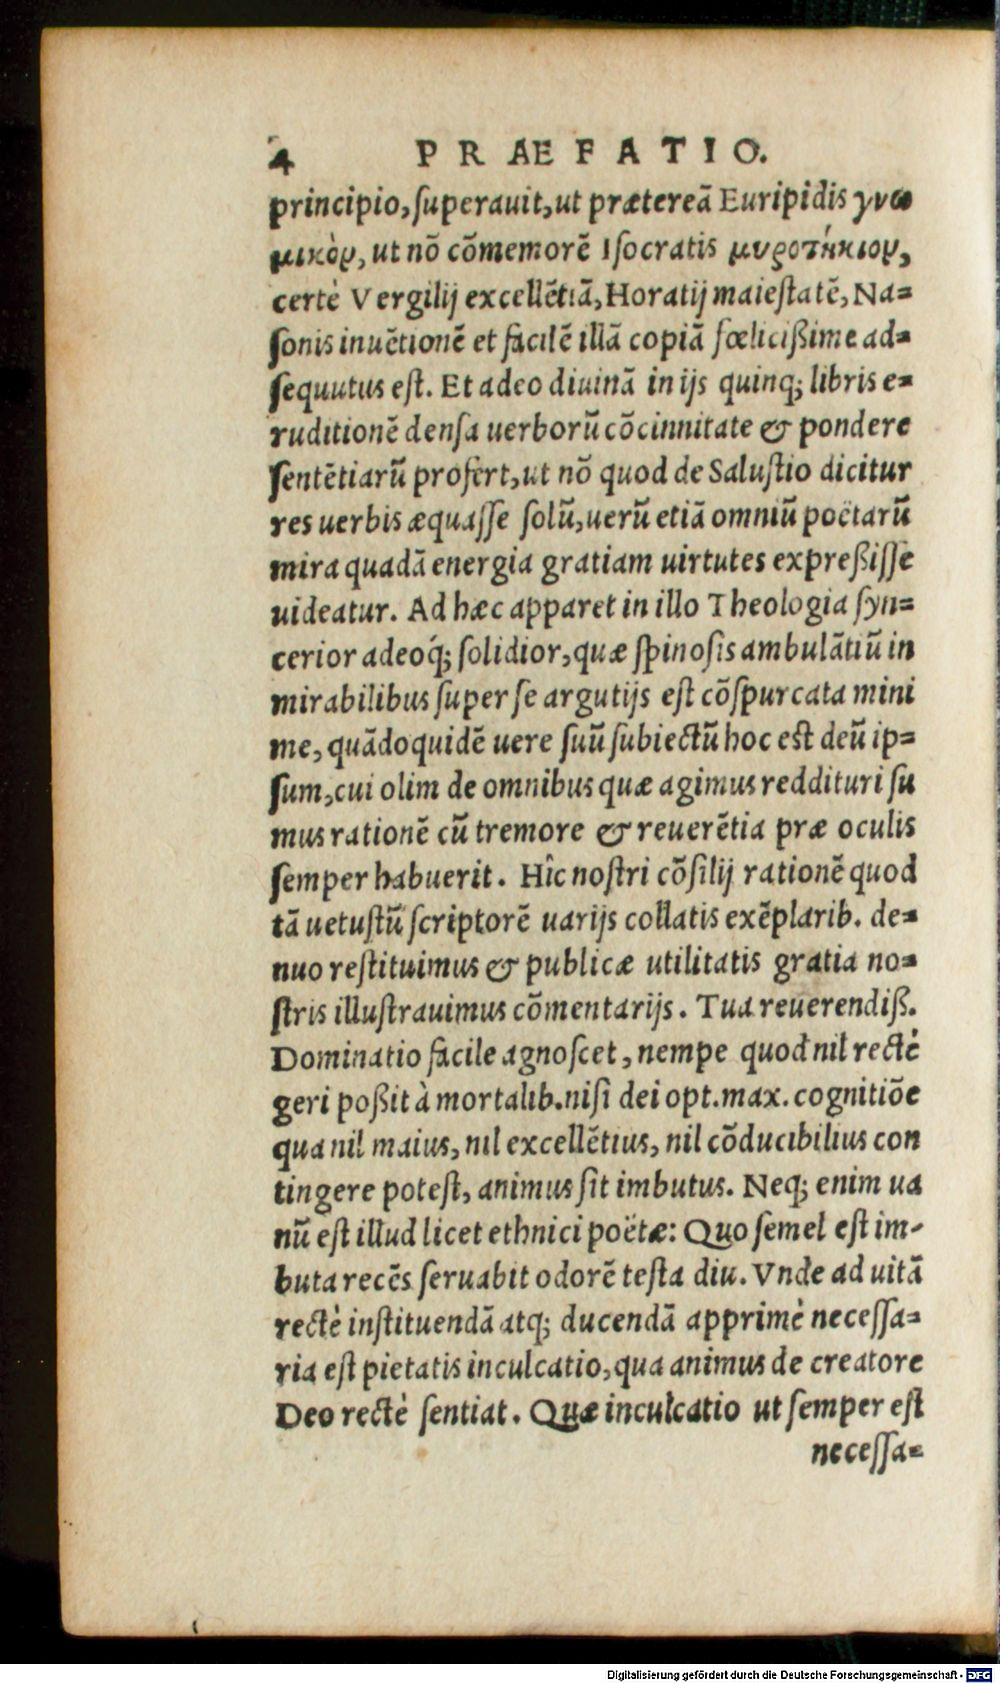 4 PRAEFATIO.
principio, ſuperauit, ut prætereã Euripidis γνω
μικὸν, ut nõ cõmemorẽ Iſocratis μυροτήκιον,
certè Vergilij excellẽtiã, Horatij maieſtatẽ, Na=
ſonis inuẽtionẽ et facilẽ illã copiã fœlicißime ad=
ſequutus eſt. Et adeo diuinã in ijs quinq; libris e=
ruditionẽ denſa uerborũ cõcinnitate & pondere
ſentẽtiarũ profert, ut nõ quod de Saluſtio dicitur
res uerbis æquaſſe ſolũ, uerũ etiã omniũ poëtarũ
mira quadã energia gratiam uirtutes expreßiſſe
uideatur. Ad hæc apparet in illo Theologia ſyn=
cerior adeoq́; ſolidior, quæ ſpinoſis ambulãtiũ in
mirabilibus ſuper ſe argutijs eſt cõſpurcata mini
me, quãdoquidẽ uere ſuũ ſubiectũ hoc est deũ ip=
ſum, cui olim de omnibus quæ agimus reddituri ſu
mus rationẽ cũ tremore & reuerẽtia præ oculis
ſemper habuerit. Hîc noſtri cõſilij rationẽ quod
tã uetuſtũ ſcriptorẽ uarijs collatis exẽplarib. de=
nuo reſtituimus & publicæ utilitatis gratia no=
ſtris illuſtrauimus cõmentarijs. Tua reuerendiß.
Dominatio facile agnoſcet, nempe quod nil rectè
geri poßit à mortalib. niſi dei opt. max. cognitiõe
qua nil maius, nil excellẽtius, nil cõducibilius con
tingere poteſt, animus ſit imbutus. Neq; enim ua
nũ eſt illud licet ethnici poëtæ: Quo ſemel eſt im-
buta recẽs ſeruabit odorẽ teſta diu. Vnde ad uitã
rectè inſtituendã atq; ducendã apprimè neceſſa=
ria eſt pietatis inculcatio, qua animus de creatore
Deo rectè ſentiat. Quæ inculcatio ut ſemper eſt
neceſſa=
Digitalisierung gefördert durch die Deutsche Forschungsgemeinschaft - DFG